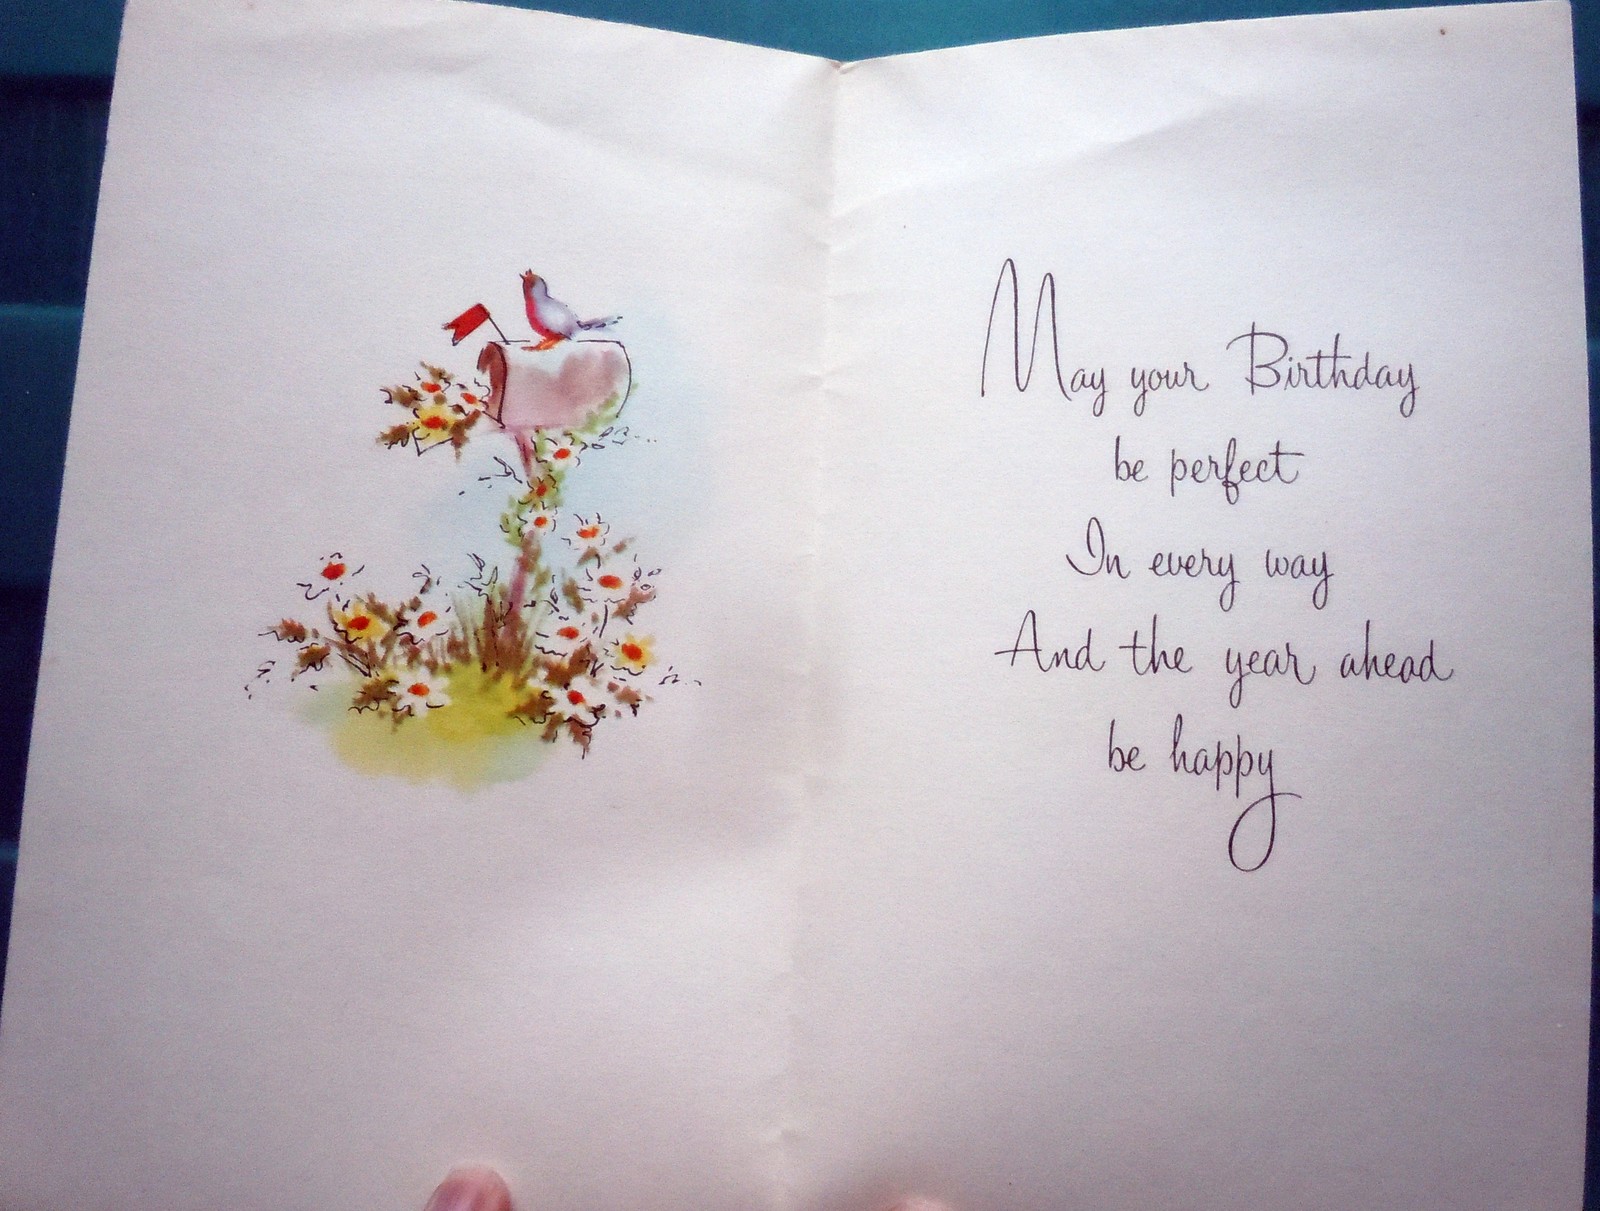 May your Birthday
be perfect
In every way
And the year ahead
be happy